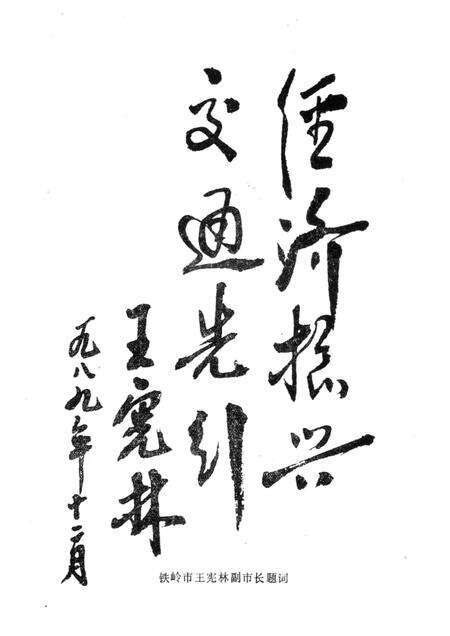 经济振兴
交通先行
王宪林
一九八九年十二月
铁岭市王宪林副市长题词